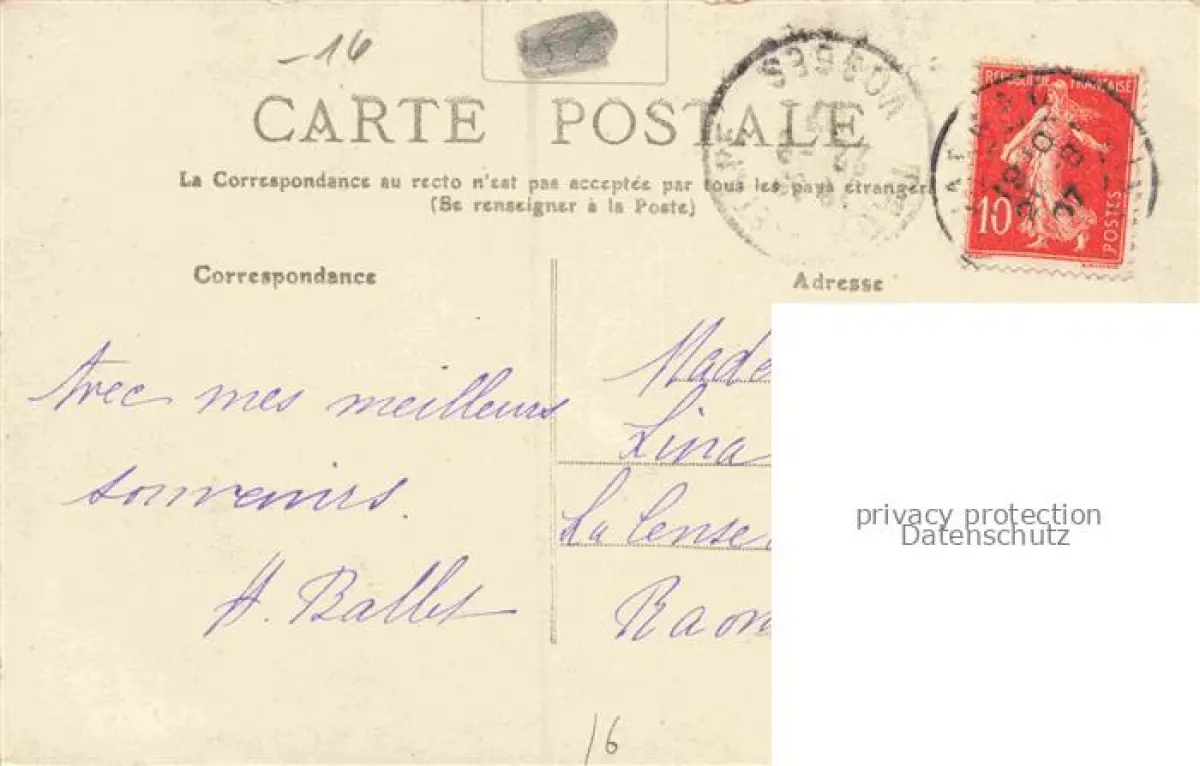 -16
CARTE POSTALE
La Correspondance au recto n'est pas acceptée par tous les pays étrangers
(Se renseigner à la Poste)
VOSGES
REPUBLIQUE FRANÇAISE
10
POSTES
10
8
07
Correspondance
Adresse
Avec mes meilleurs
souvenirs.
H. Ballet
Made
Lina
La Cense
Raon
privacy protection
Datenschutz
16